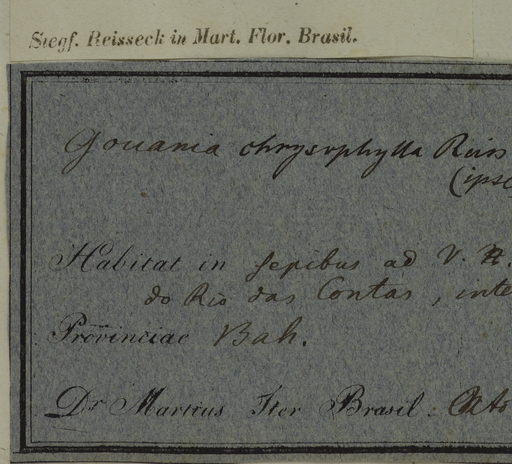 Siegf. Reisseck in Mart. Flor. Brasil.
Gouania chrysophylla Reiss
(ipse
Habitat in sepibus ad V.
do Rio das Contas, inte
Provinciae Bah.
Dr Martius Iter Brasil.